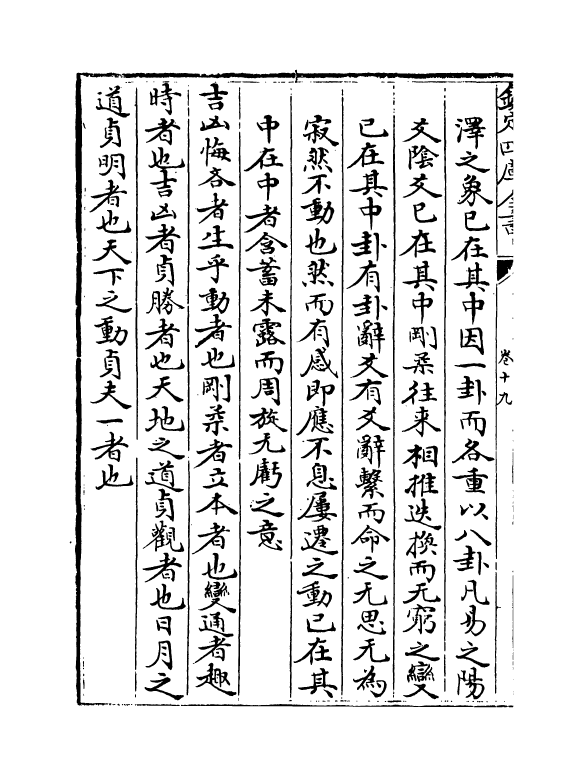 欽定四庫全書
卷十九
澤之象已在其中因一卦而各重以八卦凡易之陽
爻陰爻已在其中剛柔往来相推迭換而无窮之變
已在其中卦有卦辭爻有爻辭繫而命之无思无為
寂然不動也然而有感即應不息屢遷之動已在其
中在中者含蓄未露而周旋无虧之意
吉凶悔吝者生乎動者也剛柔者立本者也變通者趣
時者也吉凶者貞勝者也天地之道貞觀者也日月之
道貞明者也天下之動貞夫一者也